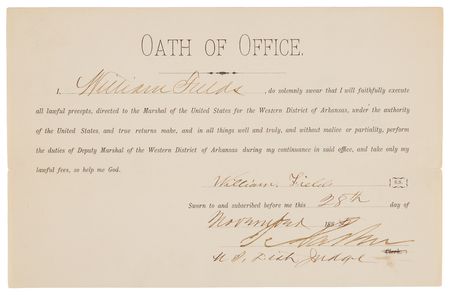 OATH OF OFFICE.
I, William Fields, do solemnly swear that I will faithfully execute
all lawful precepts, directed to the Marshal of the United States for the Western District of Arkansas, under the authority
of the United States, and true returns make, and in all things well and truly, and without malice or partiality, perform
the duties of Deputy Marshal of the Western District of Arkansas during my continuance in said office, and take only my
lawful fees, so help me God.
William Fields
Sworn to and subscribed before me this 28th day of
November 188
Clerk.
U.S. Dist Judge